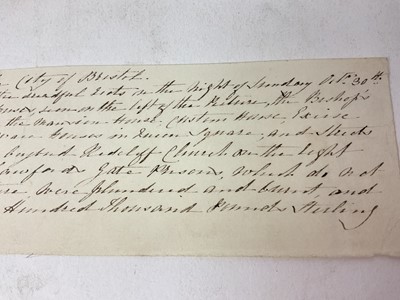 City of Bristol.
dreadful riots in the Night of Sunday Octr. 30th.
seen on the left of the Picture, the Bishop's
the Mansion House, Custom House, Excise
Houses in Queen Square, and Streets
beyond Redcliff Church on the right
Lawfords Gate Prisons, which do not
were plundered and burnt, and
Hundred Thousand Pounds Sterling